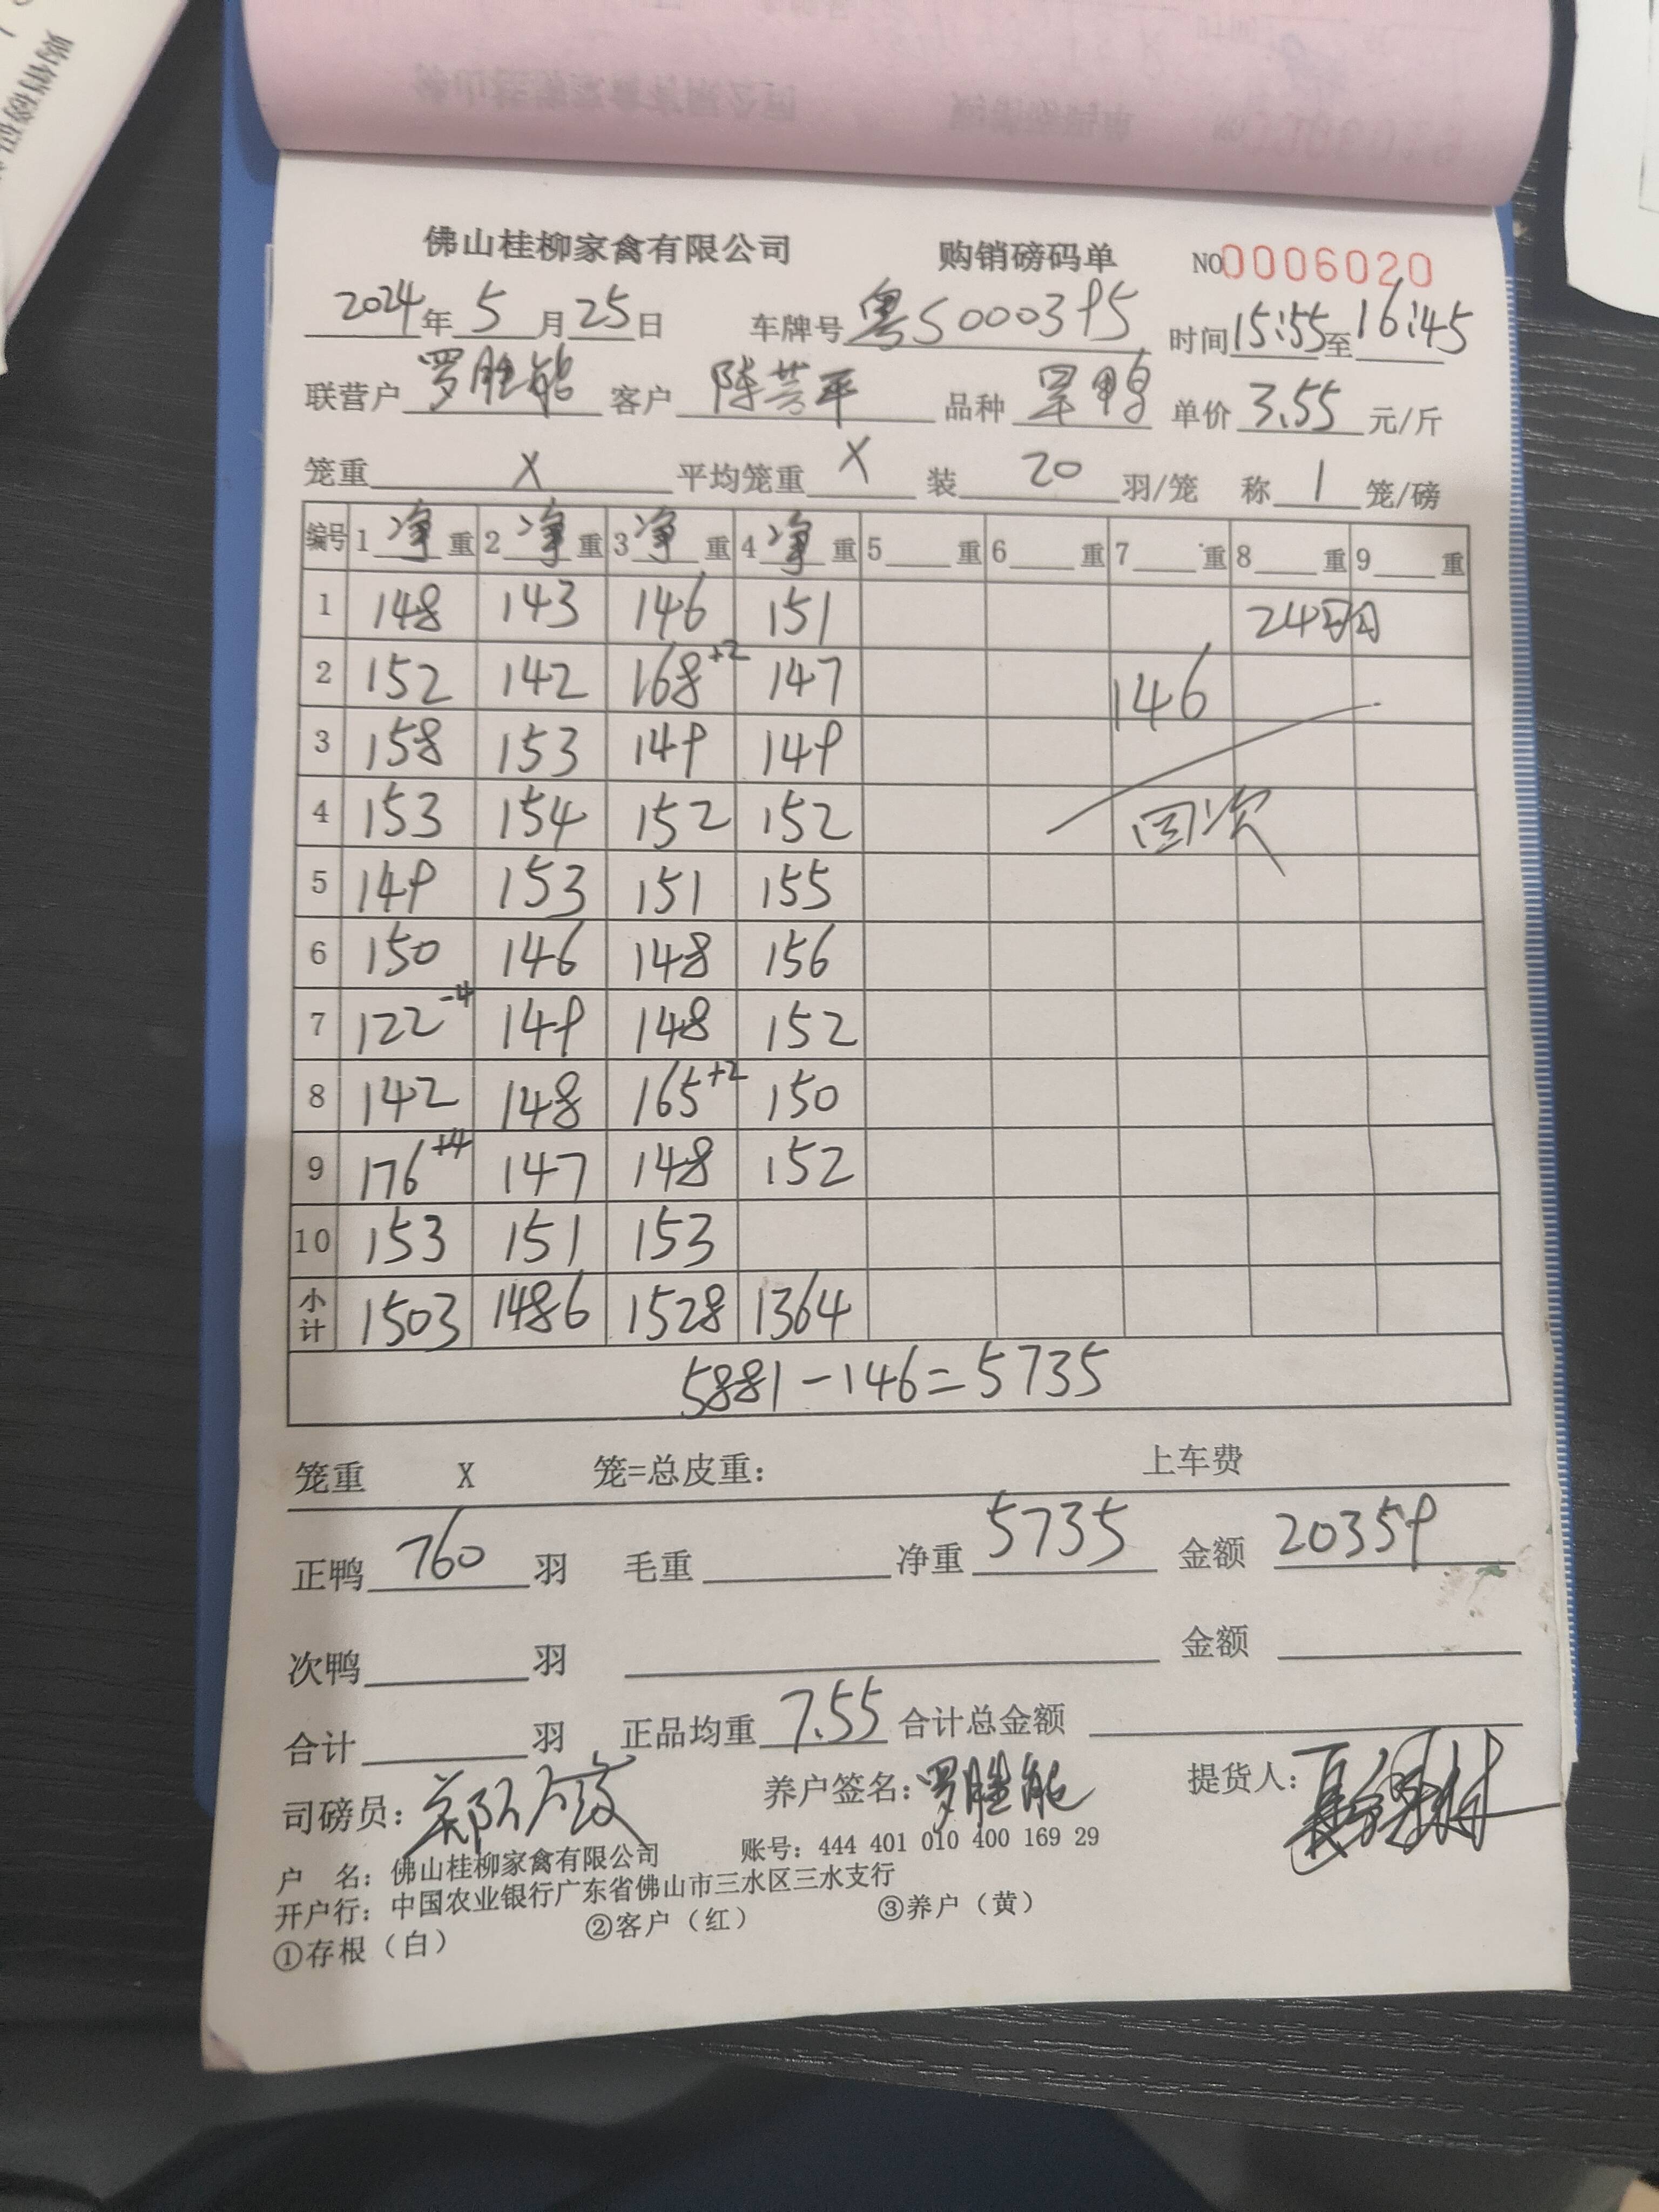 佛山桂柳家禽有限公司 购销磅码单 NO0006020
2024年5月25日 车牌号粤S000395 时间15:55至16:45
联营户罗胜能 客户陈芳平 品种 单价3.55元/斤
笼重X 平均笼重X 装20羽/笼 称1笼/磅
编号 1净重 2净重 3净重 4净重 5重 6重 7重 8重 9重
1 148 143 146 151 24
2 152 142 168+2 147 146
3 158 153 149 149
4 153 154 152 152 回次
5 149 153 151 155
6 150 146 148 156
7 122-4 149 148 152
8 142 148 165+2 150
9 176+4 147 148 152
10 153 151 153
小计 1503 1486 1528 1364
5881-146=5735
笼重 X 笼=总皮重: 上车费
正鸭760羽 毛重 净重5735 金额20359
次鸭 羽 金额
合计 羽 正品均重7.55 合计总金额
司磅员: 养户签名:罗胜能 提货人:
户 名:佛山桂柳家禽有限公司 账号:444 401 010 400 169 29
开户行:中国农业银行广东省佛山市三水区三水支行
①存根(白) ②客户(红) ③养户(黄)